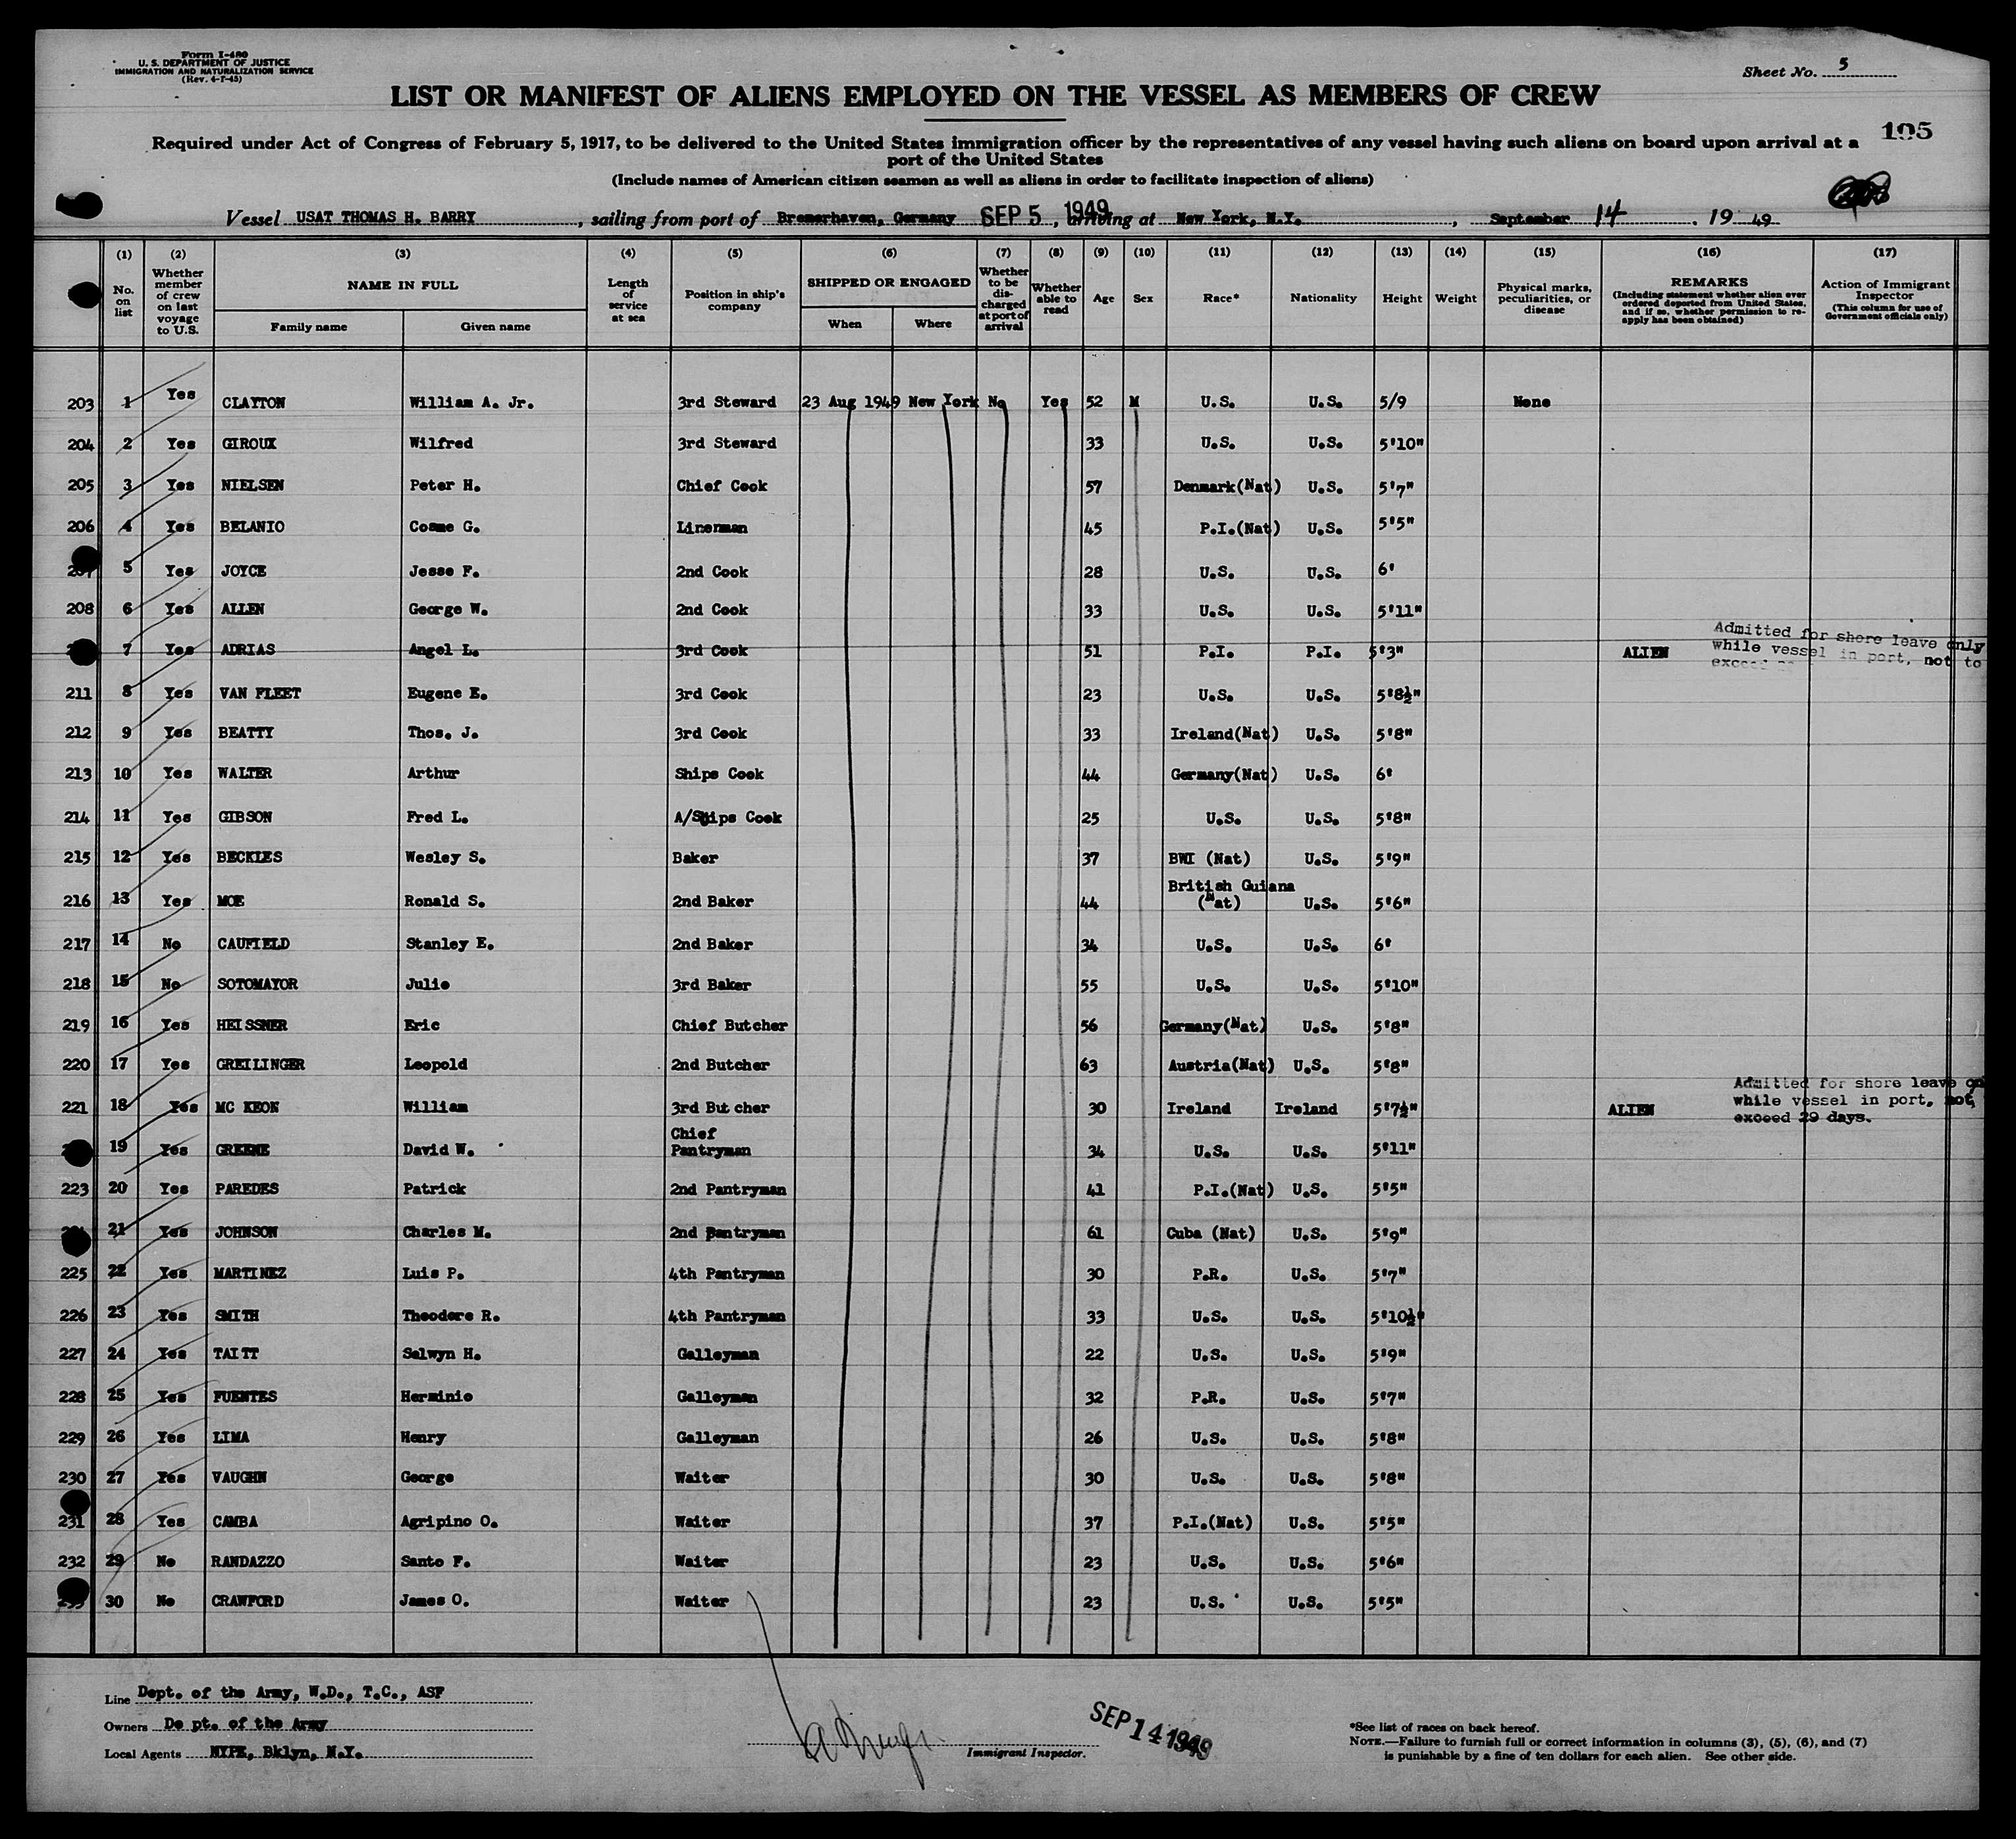 Form I-480
U. S. DEPARTMENT OF JUSTICE
IMMIGRATION AND NATURALIZATION SERVICE
(Rev. 4-7-45)
Sheet No. 5
LIST OR MANIFEST OF ALIENS EMPLOYED ON THE VESSEL AS MEMBERS OF CREW
195
Required under Act of Congress of February 5, 1917, to be delivered to the United States immigration officer by the representatives of any vessel having such aliens on board upon arrival at a
port of the United States
(Include names of American citizen seamen as well as aliens in order to facilitate inspection of aliens)
Vessel USAT THOMAS H. BARRY, sailing from port of Bremerhaven, Germany SEP 5 1949, arriving at New York, N.Y., September 14, 19 49
(1) No. on list (2) Whether member of crew on last voyage to U.S. (3) NAME IN FULL Family name Given name (4) Length of service at sea (5) Position in ship's company (6) SHIPPED OR ENGAGED When Where (7) Whether to be discharged at port of arrival (8) Whether able to read (9) Age (10) Sex (11) Race* (12) Nationality (13) Height (14) Weight (15) Physical marks, peculiarities, or disease (16) REMARKS (Including statement whether alien ever ordered deported from United States, and if so, whether permission to re-apply has been obtained) (17) Action of Immigrant Inspector (This column for use of Government officials only)
203 1 Yes CLAYTON William A. Jr. 3rd Steward 23 Aug 1949 New York No Yes 52 M U.S. U.S. 5/9 None
204 2 Yes GIROUX Wilfred 3rd Steward 33 U.S. U.S. 5'10"
205 3 Yes NIELSEN Peter H. Chief Cook 57 Denmark(Nat) U.S. 5'7"
206 4 Yes BELANIO Cosme G. Linenman 45 P.I.(Nat) U.S. 5'5"
207 5 Yes JOYCE Jesse F. 2nd Cook 28 U.S. U.S. 6'
208 6 Yes ALLEN George W. 2nd Cook 33 U.S. U.S. 5'11"
7 Yes ADRIAS Angel L. 3rd Cook 51 P.I. P.I. 5'3" ALIEN Admitted for shore leave only
while vessel in port, not to
exceed
211 8 Yes VAN FLEET Eugene E. 3rd Cook 23 U.S. U.S. 5'8½"
212 9 Yes BEATTY Thos. J. 3rd Cook 33 Ireland(Nat) U.S. 5'8"
213 10 Yes WALTER Arthur Ships Cook 44 Germany(Nat) U.S. 6'
214 11 Yes GIBSON Fred L. A/Ships Cook 25 U.S. U.S. 5'8"
215 12 Yes BECKLES Wesley S. Baker 37 BWI (Nat) U.S. 5'9"
216 13 Yes MOE Ronald S. 2nd Baker 44 British Guiana (Nat) U.S. 5'6"
217 14 No CAUFIELD Stanley E. 2nd Baker 34 U.S. U.S. 6'
218 15 No SOTOMAYOR Julio 3rd Baker 55 U.S. U.S. 5'10"
219 16 Yes HEISSNER Eric Chief Butcher 56 Germany(Nat) U.S. 5'8"
220 17 Yes GREILINGER Leopold 2nd Butcher 63 Austria(Nat) U.S. 5'8"
221 18 Yes MC KEON William 3rd Butcher 30 Ireland Ireland 5'7½" ALIEN Admitted for shore leave
while vessel in port, not,
exceed 29 days.
19 Yes GREENE David W. Chief Pantryman 34 U.S. U.S. 5'11"
223 20 Yes PAREDES Patrick 2nd Pantryman 41 P.I.(Nat) U.S. 5'5"
21 Yes JOHNSON Charles M. 2nd Pantryman 61 Cuba (Nat) U.S. 5'9"
225 22 Yes MARTINEZ Luis P. 4th Pantryman 30 P.R. U.S. 5'7"
226 23 Yes SMITH Theodore R. 4th Pantryman 33 U.S. U.S. 5'10½"
227 24 Yes TAITT Selwyn H. Galleyman 22 U.S. U.S. 5'9"
228 25 Yes FUENTES Herminio Galleyman 32 P.R. U.S. 5'7"
229 26 Yes LIMA Henry Galleyman 26 U.S. U.S. 5'8"
230 27 Yes VAUGHN George Waiter 30 U.S. U.S. 5'8"
231 28 Yes CAMBA Agripino O. Waiter 37 P.I.(Nat) U.S. 5'5"
232 29 No RANDAZZO Santo F. Waiter 23 U.S. U.S. 5'6"
30 No CRAWFORD James O. Waiter 23 U.S. U.S. 5'5"
Line Dept. of the Army, W.D., T.C., ASF
Owners De pt. of the Army
Local Agents NYPE, Bklyn, N.Y.
Immigrant Inspector.
SEP 14 1949
*See list of races on back hereof.
NOTE.—Failure to furnish full or correct information in columns (3), (5), (6), and (7)
is punishable by a fine of ten dollars for each alien. See other side.